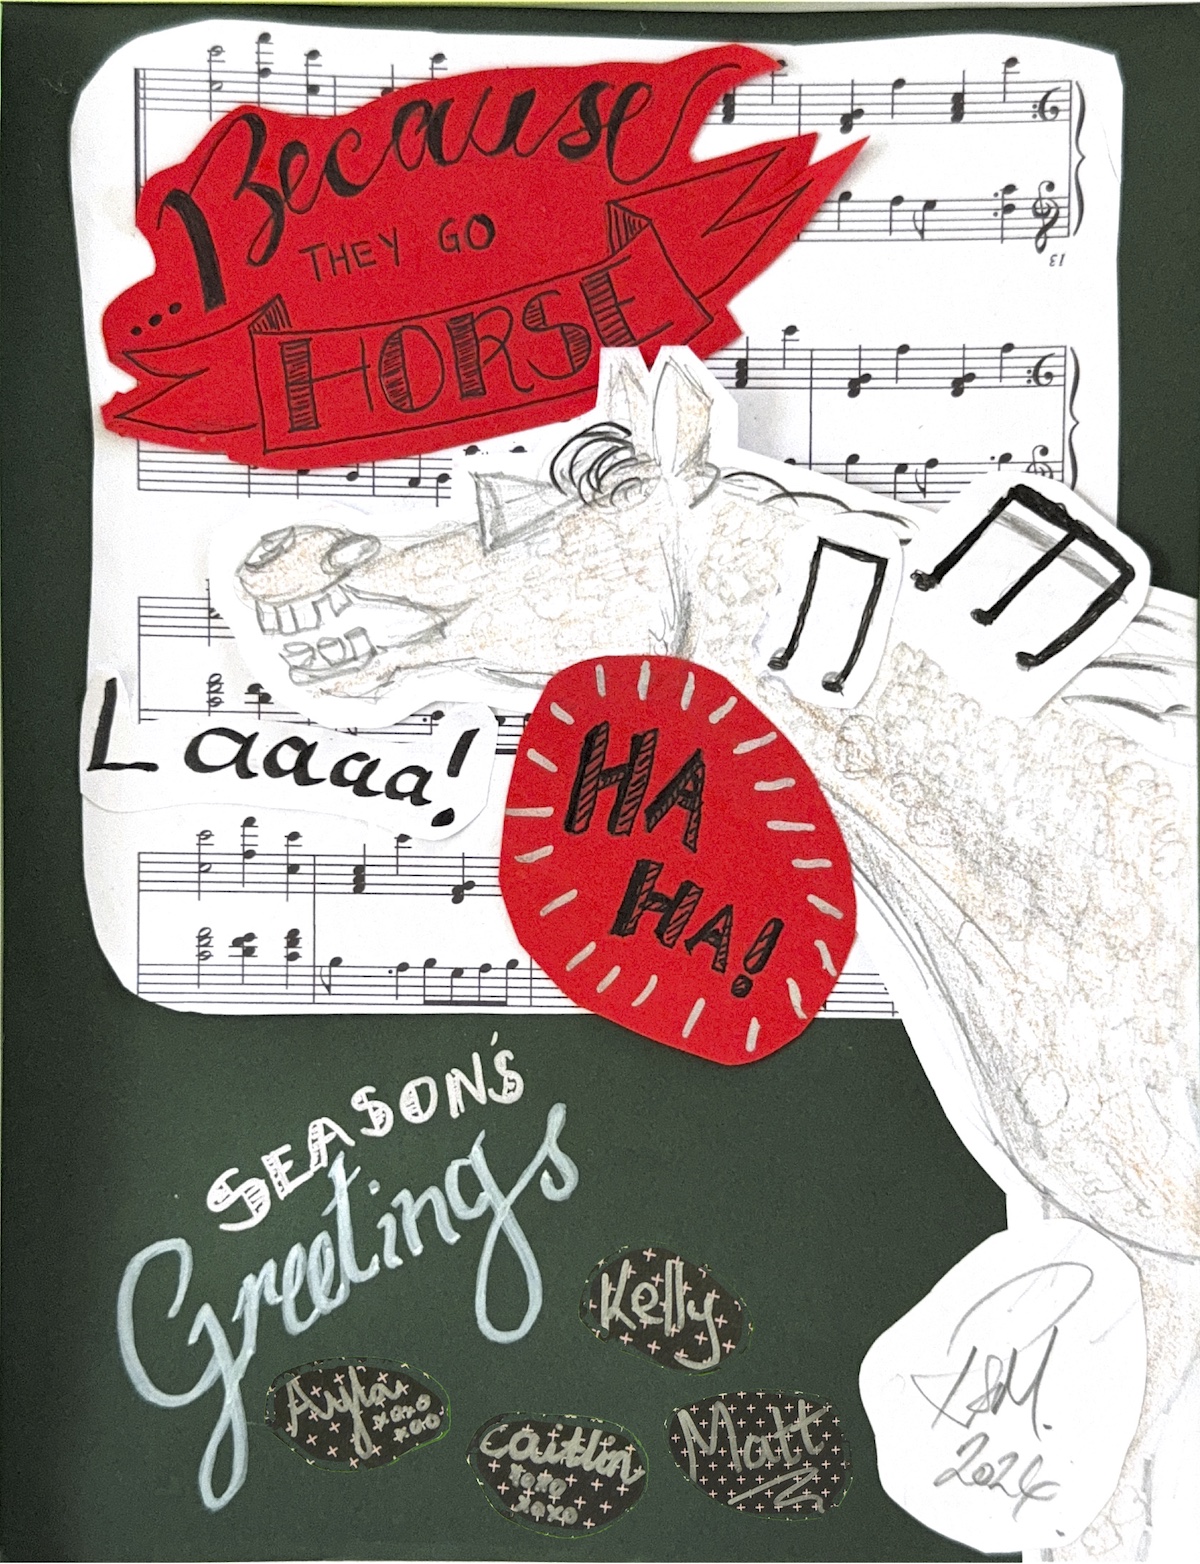 ...Because
THEY GO
HORSE
Laaaa!
HA
HA
HA!
SEASON'S
Greetings
Kelly
Ayla
xoxo
xoo
Caitlin
xoxo
xoxo
Matt
2024
13